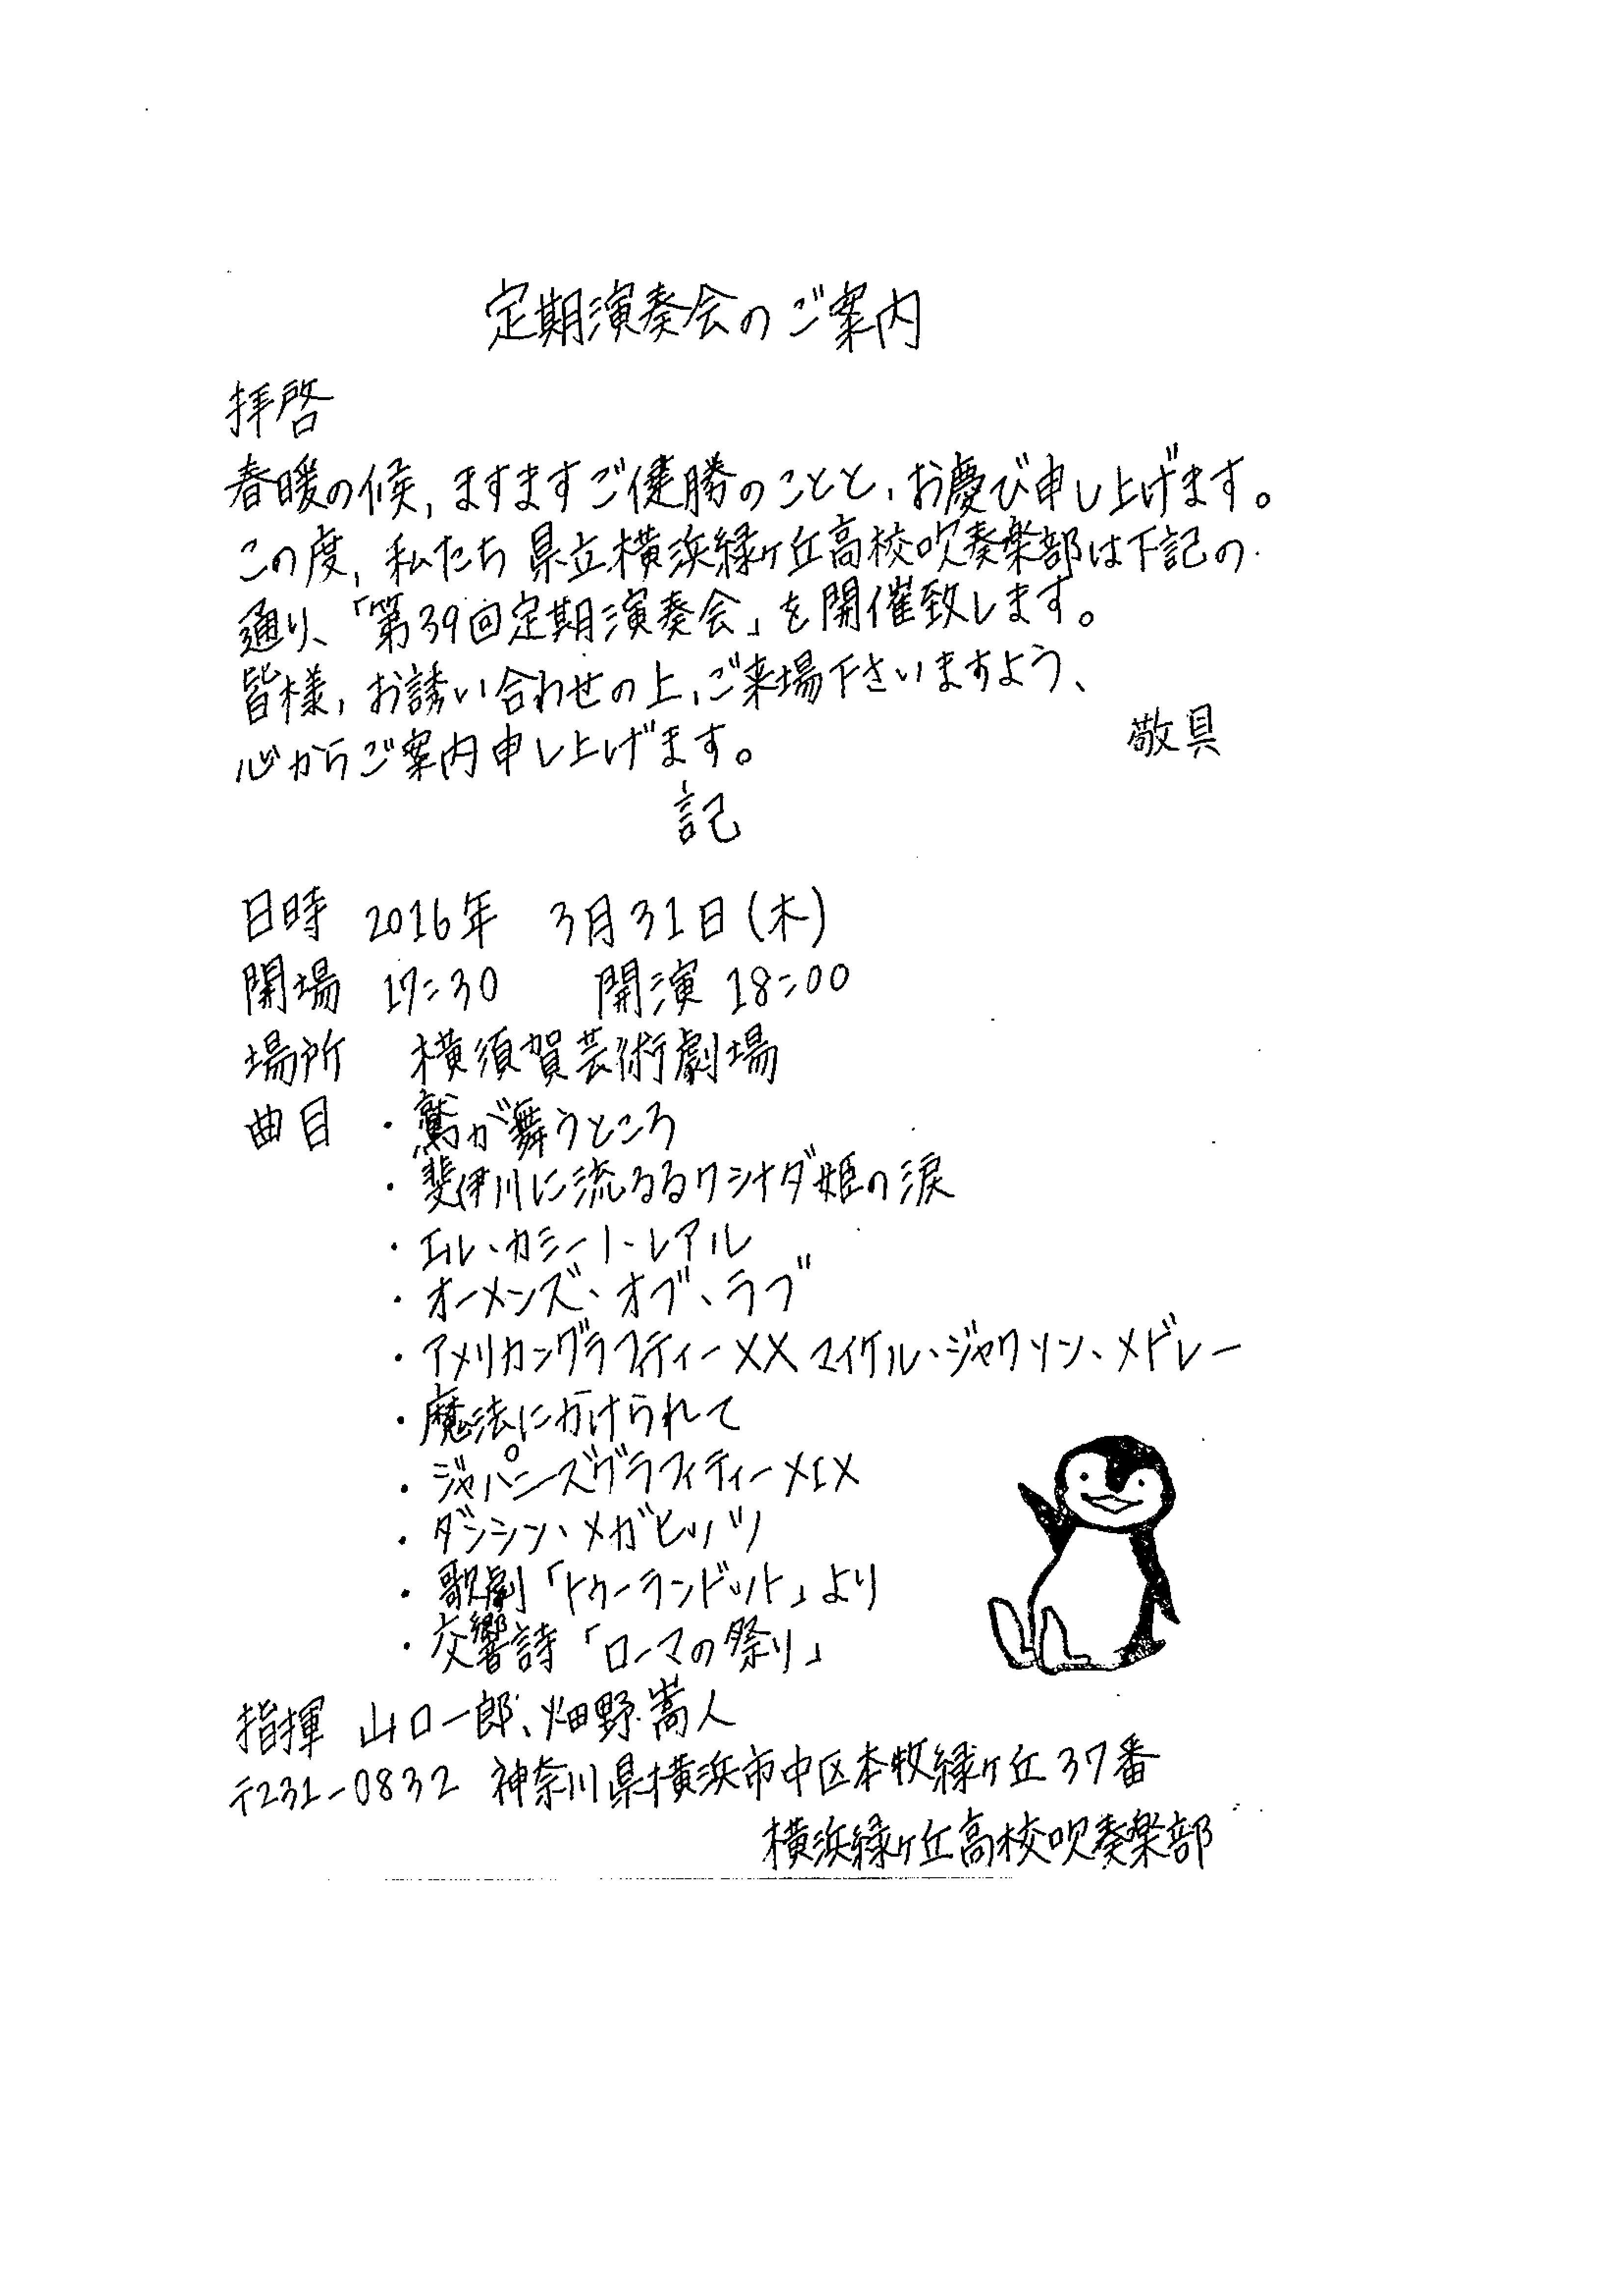 定期演奏会のご案内
拝啓
春暖の候,ますますご健勝のことと、お慶び申し上げます。
この度,私たち県立横浜緑ヶ丘高校吹奏楽部は下記の
通り、「第39回定期演奏会」を開催致します。
皆様,お誘い合わせの上、ご来場下さいますよう、
心からご案内申し上げます。
敬具
記
日時 2016年 3月31日(木)
開場 17:30 開演 18:00
場所 横須賀芸術劇場
曲目 ・鷲が舞うところ
・斐伊川に流るるクシナダ姫の涙
・エル・カミーノ・レアル
・オーメンズ・オブ・ラブ
・アメリカングラフィティーXX マイケル・ジャクソン・メドレー
・魔法にかけられて
・ジャパニーズグラフィティーXIX
・ダンシン・メガヒッツ
・歌劇「トゥーランドット」より
・交響詩「ローマの祭り」
指揮 山口一郎、畑野嵩人
〒231-0832 神奈川県横浜市中区本牧緑ヶ丘37番
横浜緑ヶ丘高校吹奏楽部